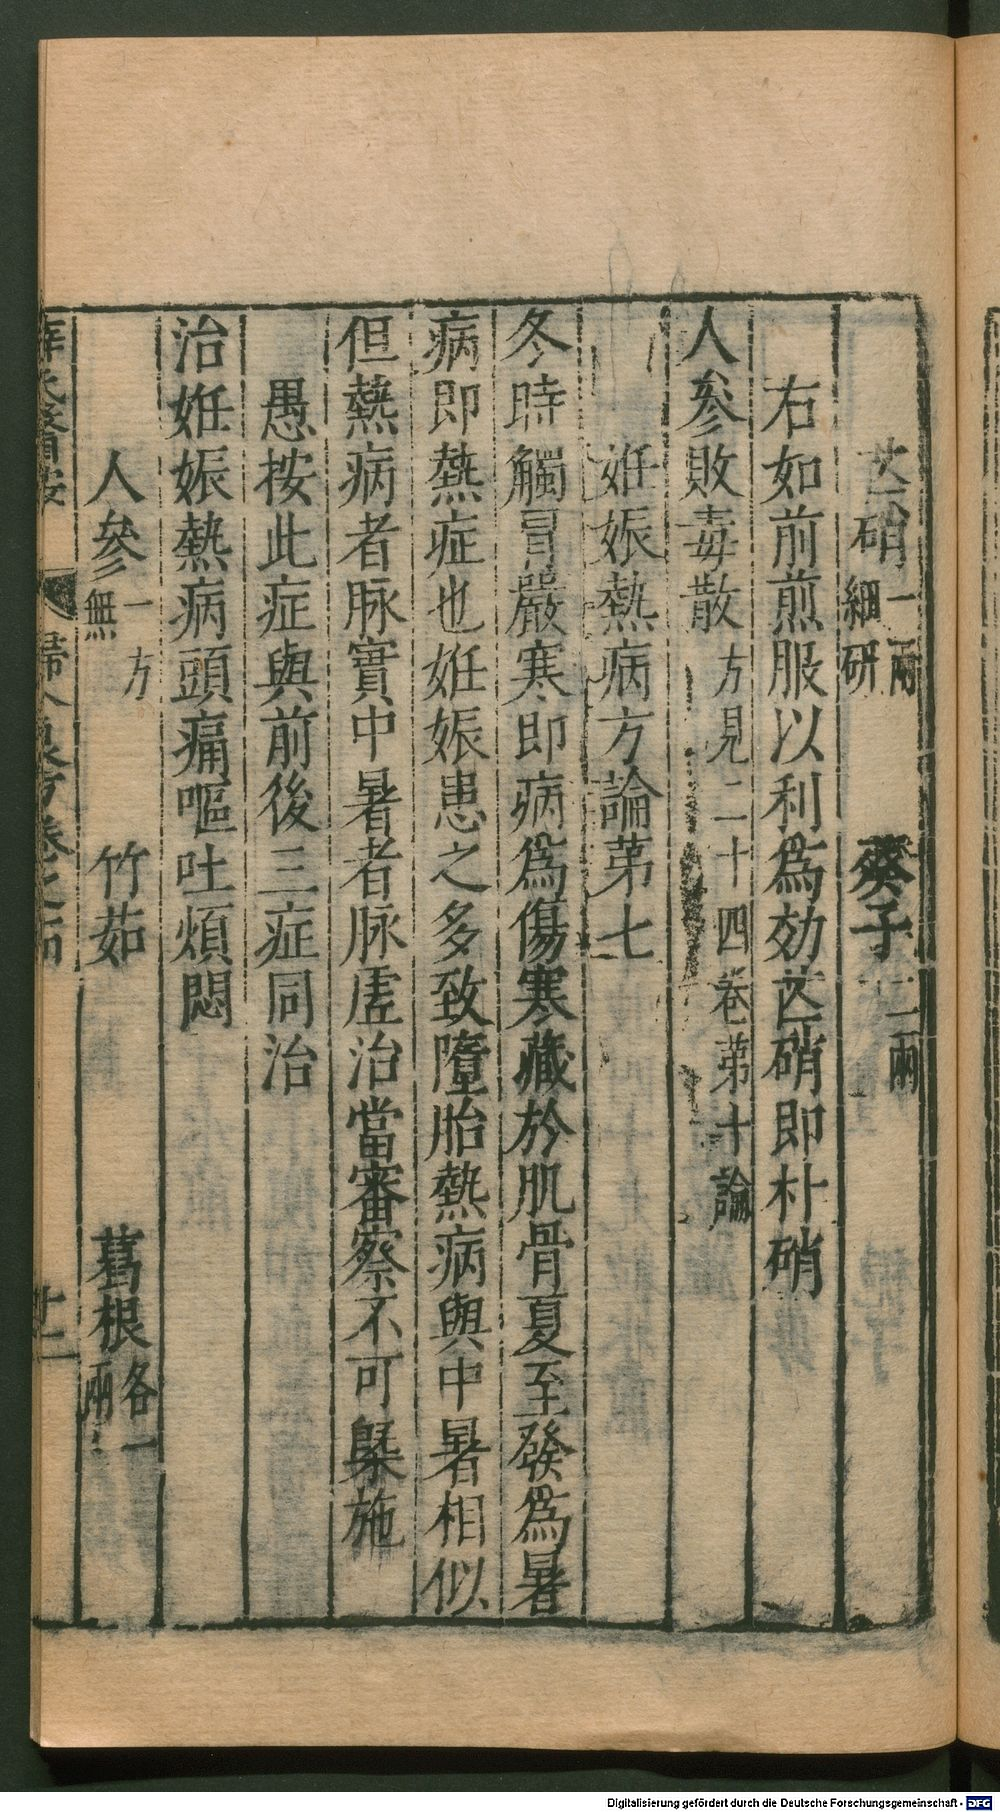 芒硝一兩細研 葵子二兩
右如前煎服以利爲効芒硝即朴硝
人參敗毒散方見二十四卷第十論
姙娠熱病方論第七
冬時觸冒嚴寒即病爲傷寒藏於肌骨夏至發爲暑
病即熱症也姙娠患之多致墮胎熱病與中暑相似
但熱病者脉實中暑者脉虛治當審察不可槩施
愚按此症與前後三症同治
治姙娠熱病頭痛嘔吐煩悶
人參一方無 竹茹 葛根各一兩
薛氏醫按 婦人良方卷之十四 廿二
Digitalisierung gefördert durch die Deutsche Forschungsgemeinschaft - DFG